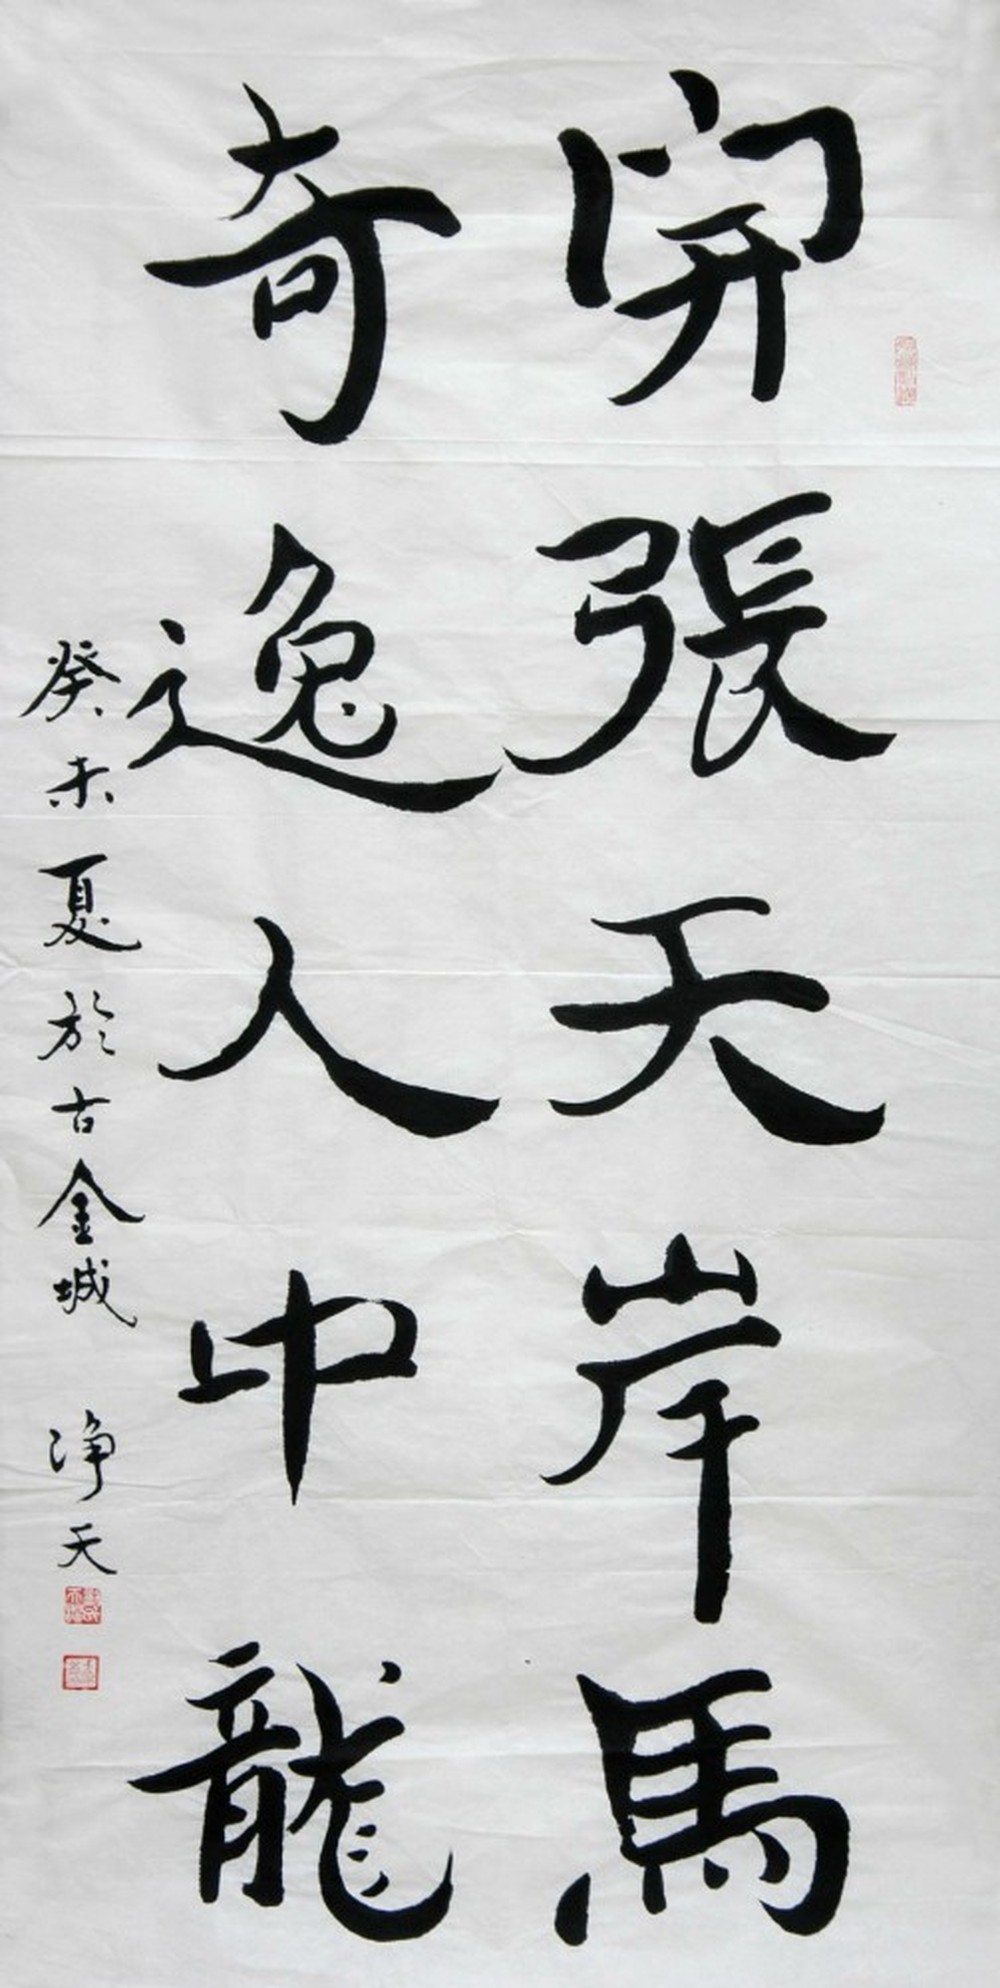 開張天岸馬
奇逸人中龍
癸未夏於古金城 净天